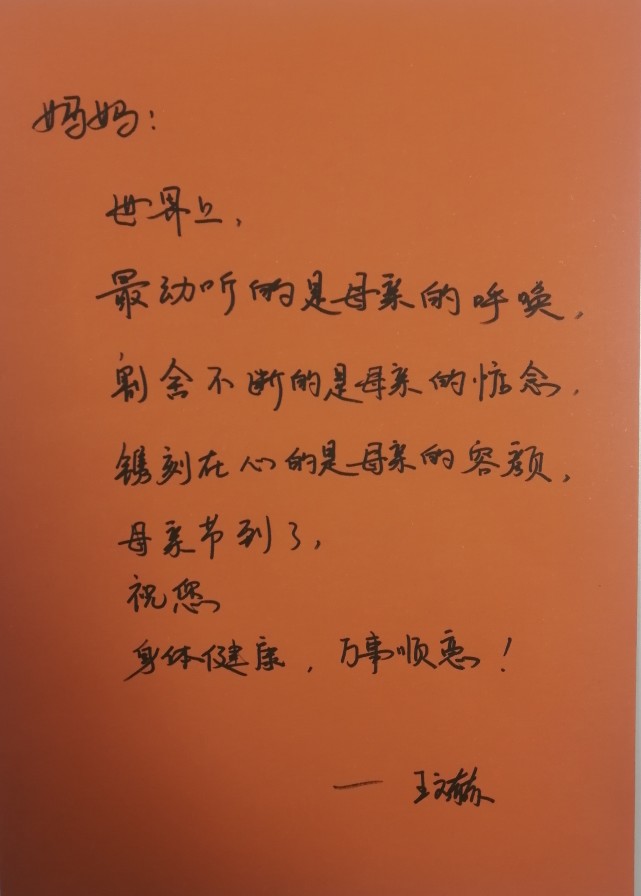 妈妈:
世界上,
最动听的是母亲的呼唤,
割舍不断的是母亲的惦念,
镌刻在心的是母亲的容颜,
母亲节到了,
祝您
身体健康,万事顺意!
— 王文赫